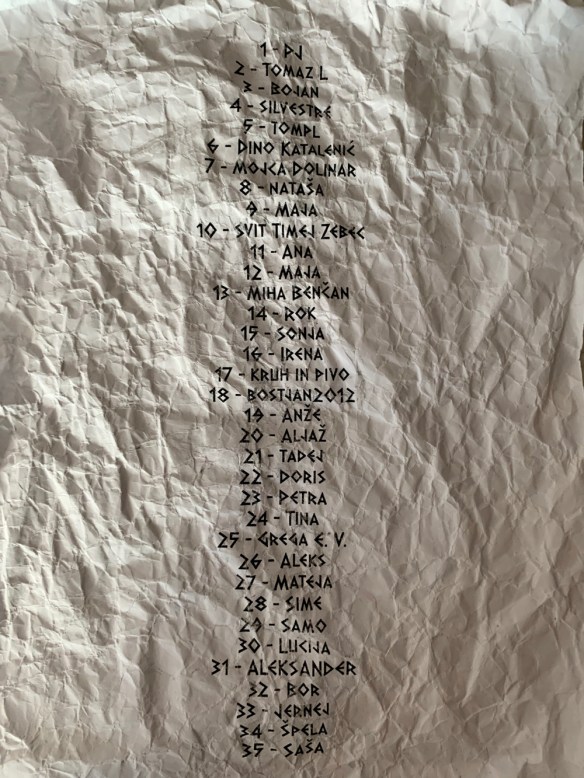 1 - PJ
2 - TOMAZ L
3 - BOJAN
4 - SILVESTRE
5 - TOMPL
6 - DINO KATALENIĆ
7 - MOJCA DOLINAR
8 - NATAŠA
9 - MAJA
10 - SVIT TIMEJ ZEBEC
11 - ANA
12 - MAJA
13 - MIHA BENČAN
14 - ROK
15 - SONJA
16 - IRENA
17 - KRUH IN PIVO
18 - BOSTJAN2012
19 - ANŽE
20 - ALJAŽ
21 - TADEJ
22 - DORIS
23 - PETRA
24 - TINA
25 - GREGA E. V.
26 - ALEKS
27 - MATEJA
28 - SIME
29 - SAMO
30 - LUCIJA
31 - ALEKSANDER
32 - BOR
33 - JERNEJ
34 - ŠPELA
35 - SAŠA